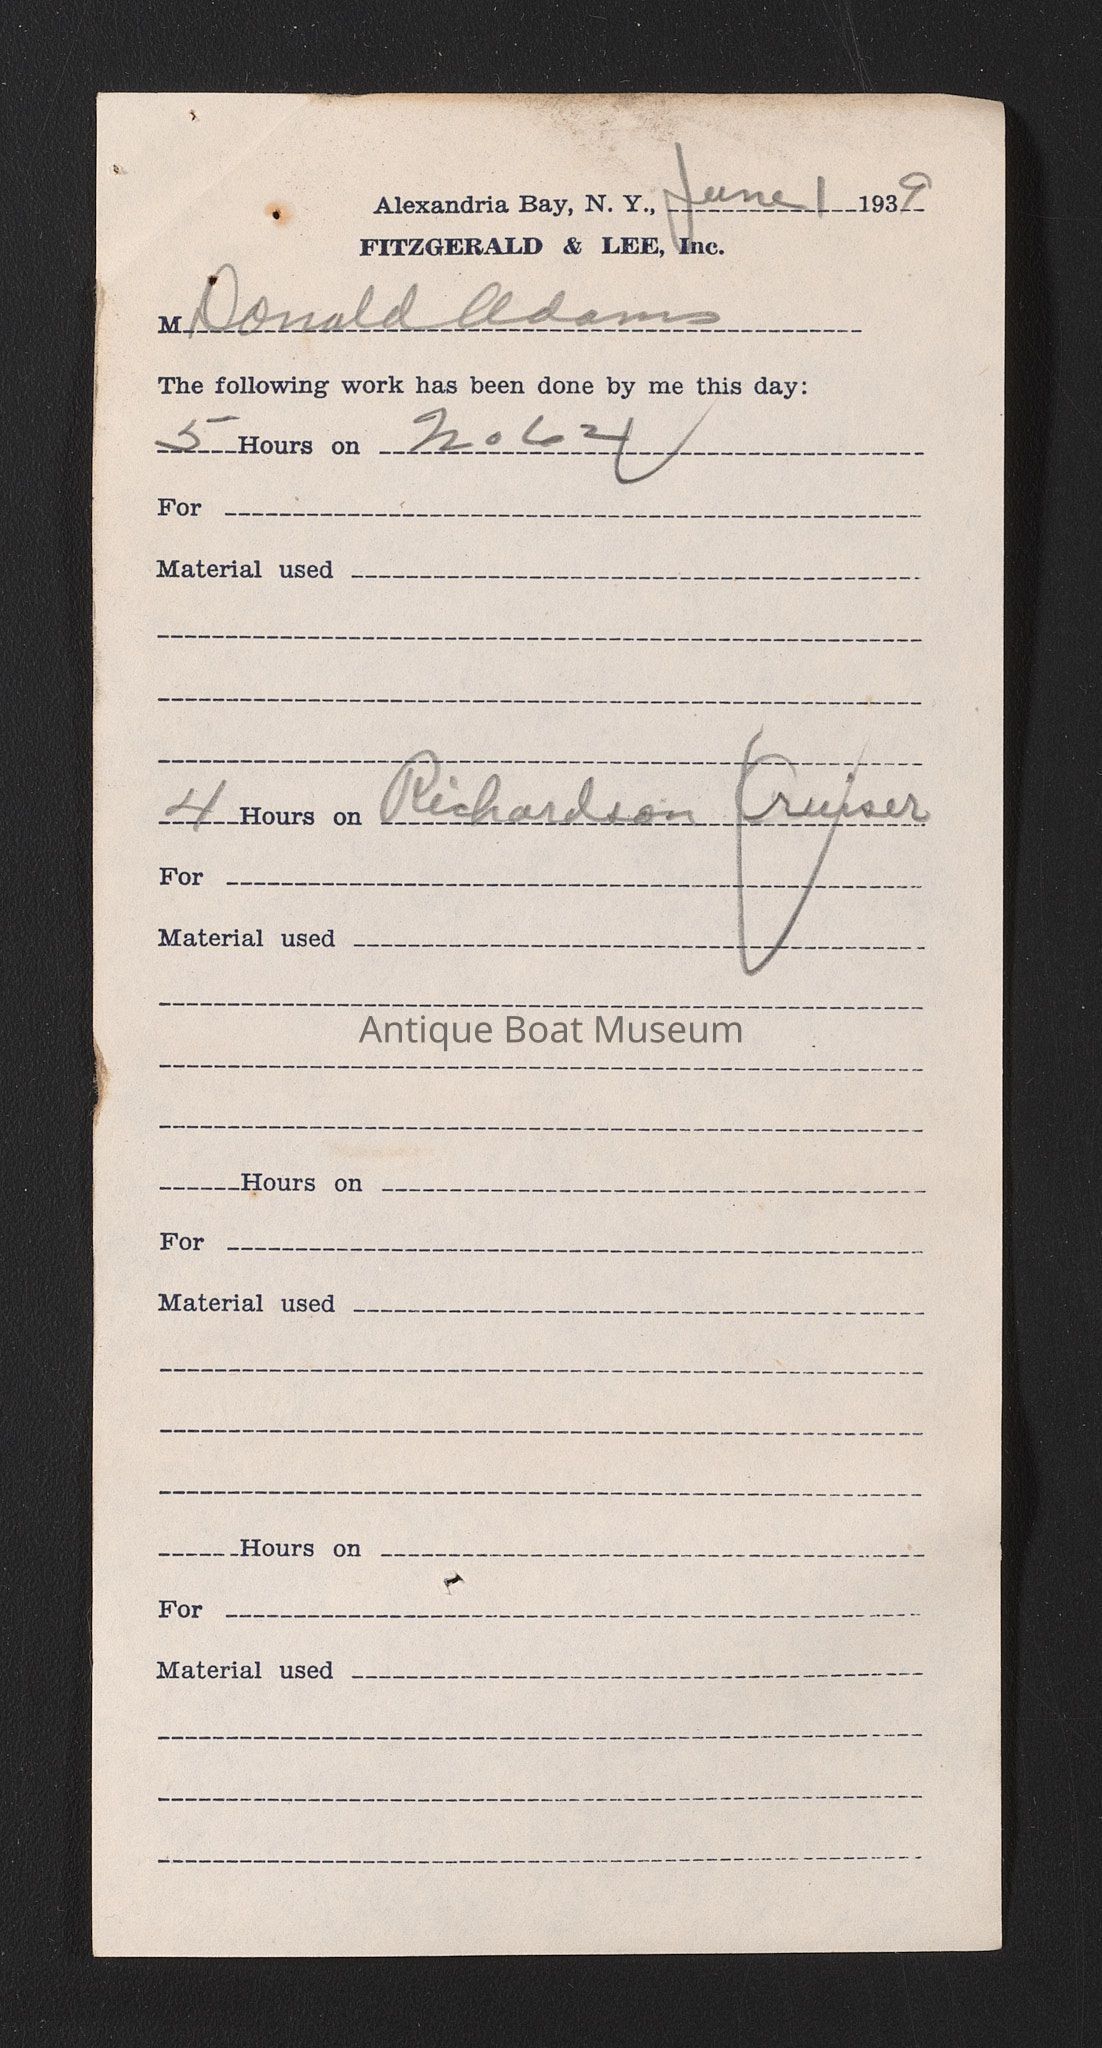 Alexandria Bay, N. Y., June 1 1939
FITZGERALD & LEE, Inc.
M Donald Adams
The following work has been done by me this day:
5 Hours on No 64
For
Material used
4 Hours on Richardson Cruiser
For
Material used
Antique Boat Museum
Hours on
For
Material used
Hours on
For
Material used